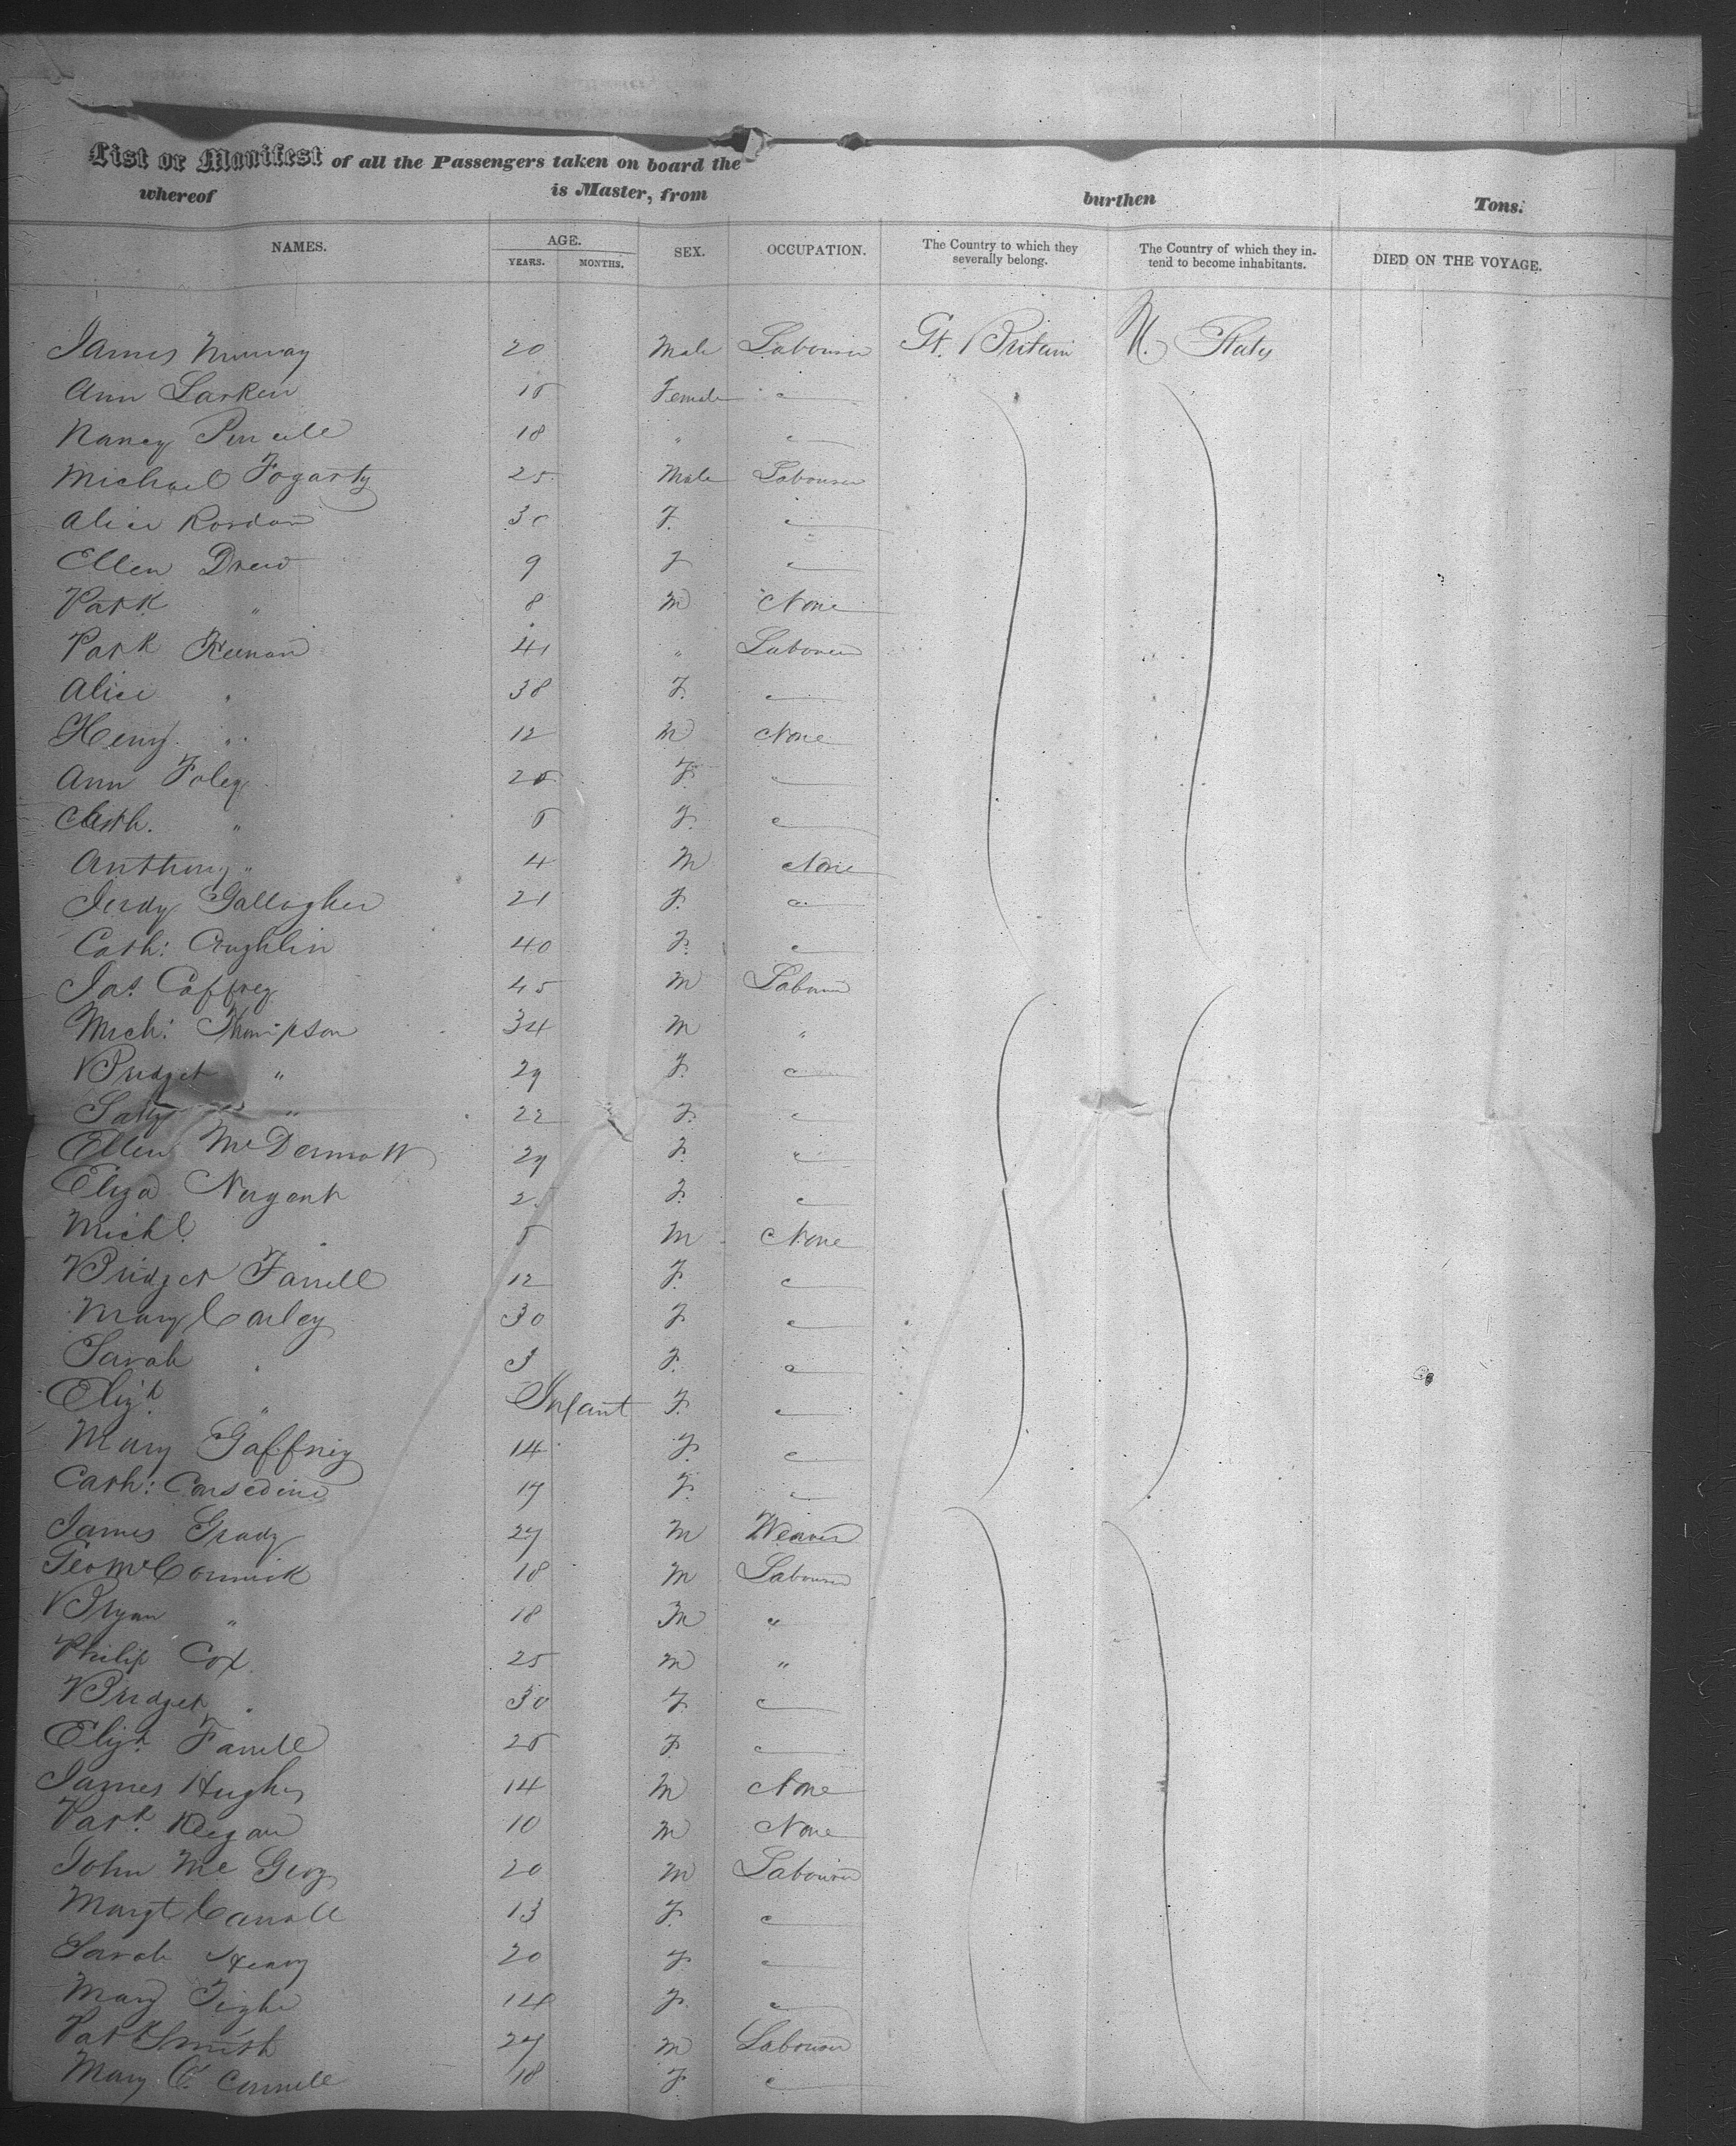 List or Manifest of all the Passengers taken on board the
whereof is Master, from burthen Tons.
NAMES. AGE. SEX. OCCUPATION. The Country to which they severally belong. The Country of which they intend to become inhabitants. DIED ON THE VOYAGE.
YEARS. MONTHS.
James Murray 20 Male Labourer Gt. Britain U. States
Ann Larken Female "
Nancy Purcell 18 " "
Michael Fogarty 25 Male Labourer
Alice Rordan 30 F. "
Ellen Drew 9 F "
Patk " 8 M None
Patk Keenan 41 " Labourer
Alice " 38 F. "
Henry " 12 M None
Ann Foley F. "
Cath. " F. "
Anthony " 4 M None
Judy Gallagher 21 F. "
Cath: Coughlin 40 F. "
Jas. Caffrey 45 M Labourer
Mich: Thompson 34 M "
Bridget " 29 F. "
Sally " 22 F. "
Ellen McDermott 29 F. "
Eliza Nugent F. "
Michl. " 5 M None
Bridget Farrell 12 F. "
Mary Carley 30 F "
Sarah " 3 F. "
Elizh " Infant F. "
Mary Gaffney 14 F. "
Cath: Considine 17 F. "
James Grady 27 M Weaver
Geo McCormick 18 M Labourer
Bryan " 18 M "
Philip Cox 25 M "
Bridget " 30 F. "
Elizh Farrell F. "
James Hughes 14 M None
Patk. Regan 10 M None
John Mc 20 M Labourer
Margt Carroll 13 F. "
Sarah Henry 20 F. "
Mary Tighe 14 F. "
Patk Smith 27 M Labourer
Mary O'Connell 18 F. "